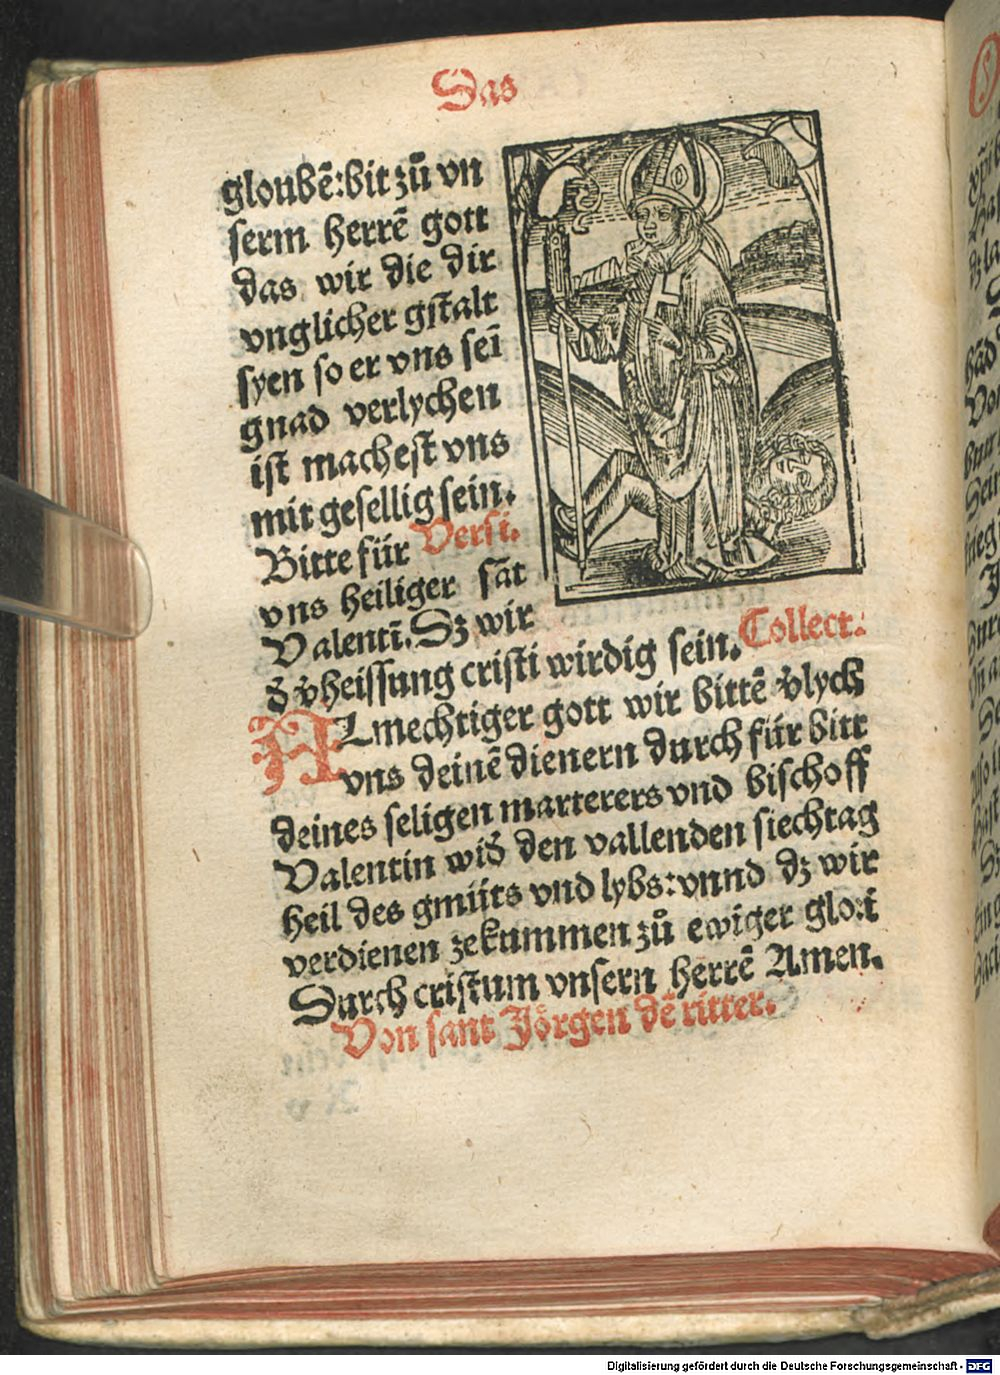 Das
gloubē:bit zů vn
serm herrē gott
das wir die dir
vnglicher gstalt
syen so er vns seī
gnad verlychen
ist machest vns
mit gesellig sein.
Bitte für Versi.
vns heiliger sāt
Valentī. Dz wir
d̕ v̕heissung cristi wirdig sein. Collect.
ALmechtiger gott wir bittē v̕lych
vns deinē dienern durch für bitt
deines seligen marterers vnd bischoff
Valentin wid̕ den vallenden siechtag
heil des gmüts vnd lybs: vnnd dz wir
verdienen zekummen zů ewiger glori
Durch cristum vnsern herrē Amen.
Von sant Jörgen dē ritter.
Digitalisierung gefördert durch die Deutsche Forschungsgemeinschaft - DFG